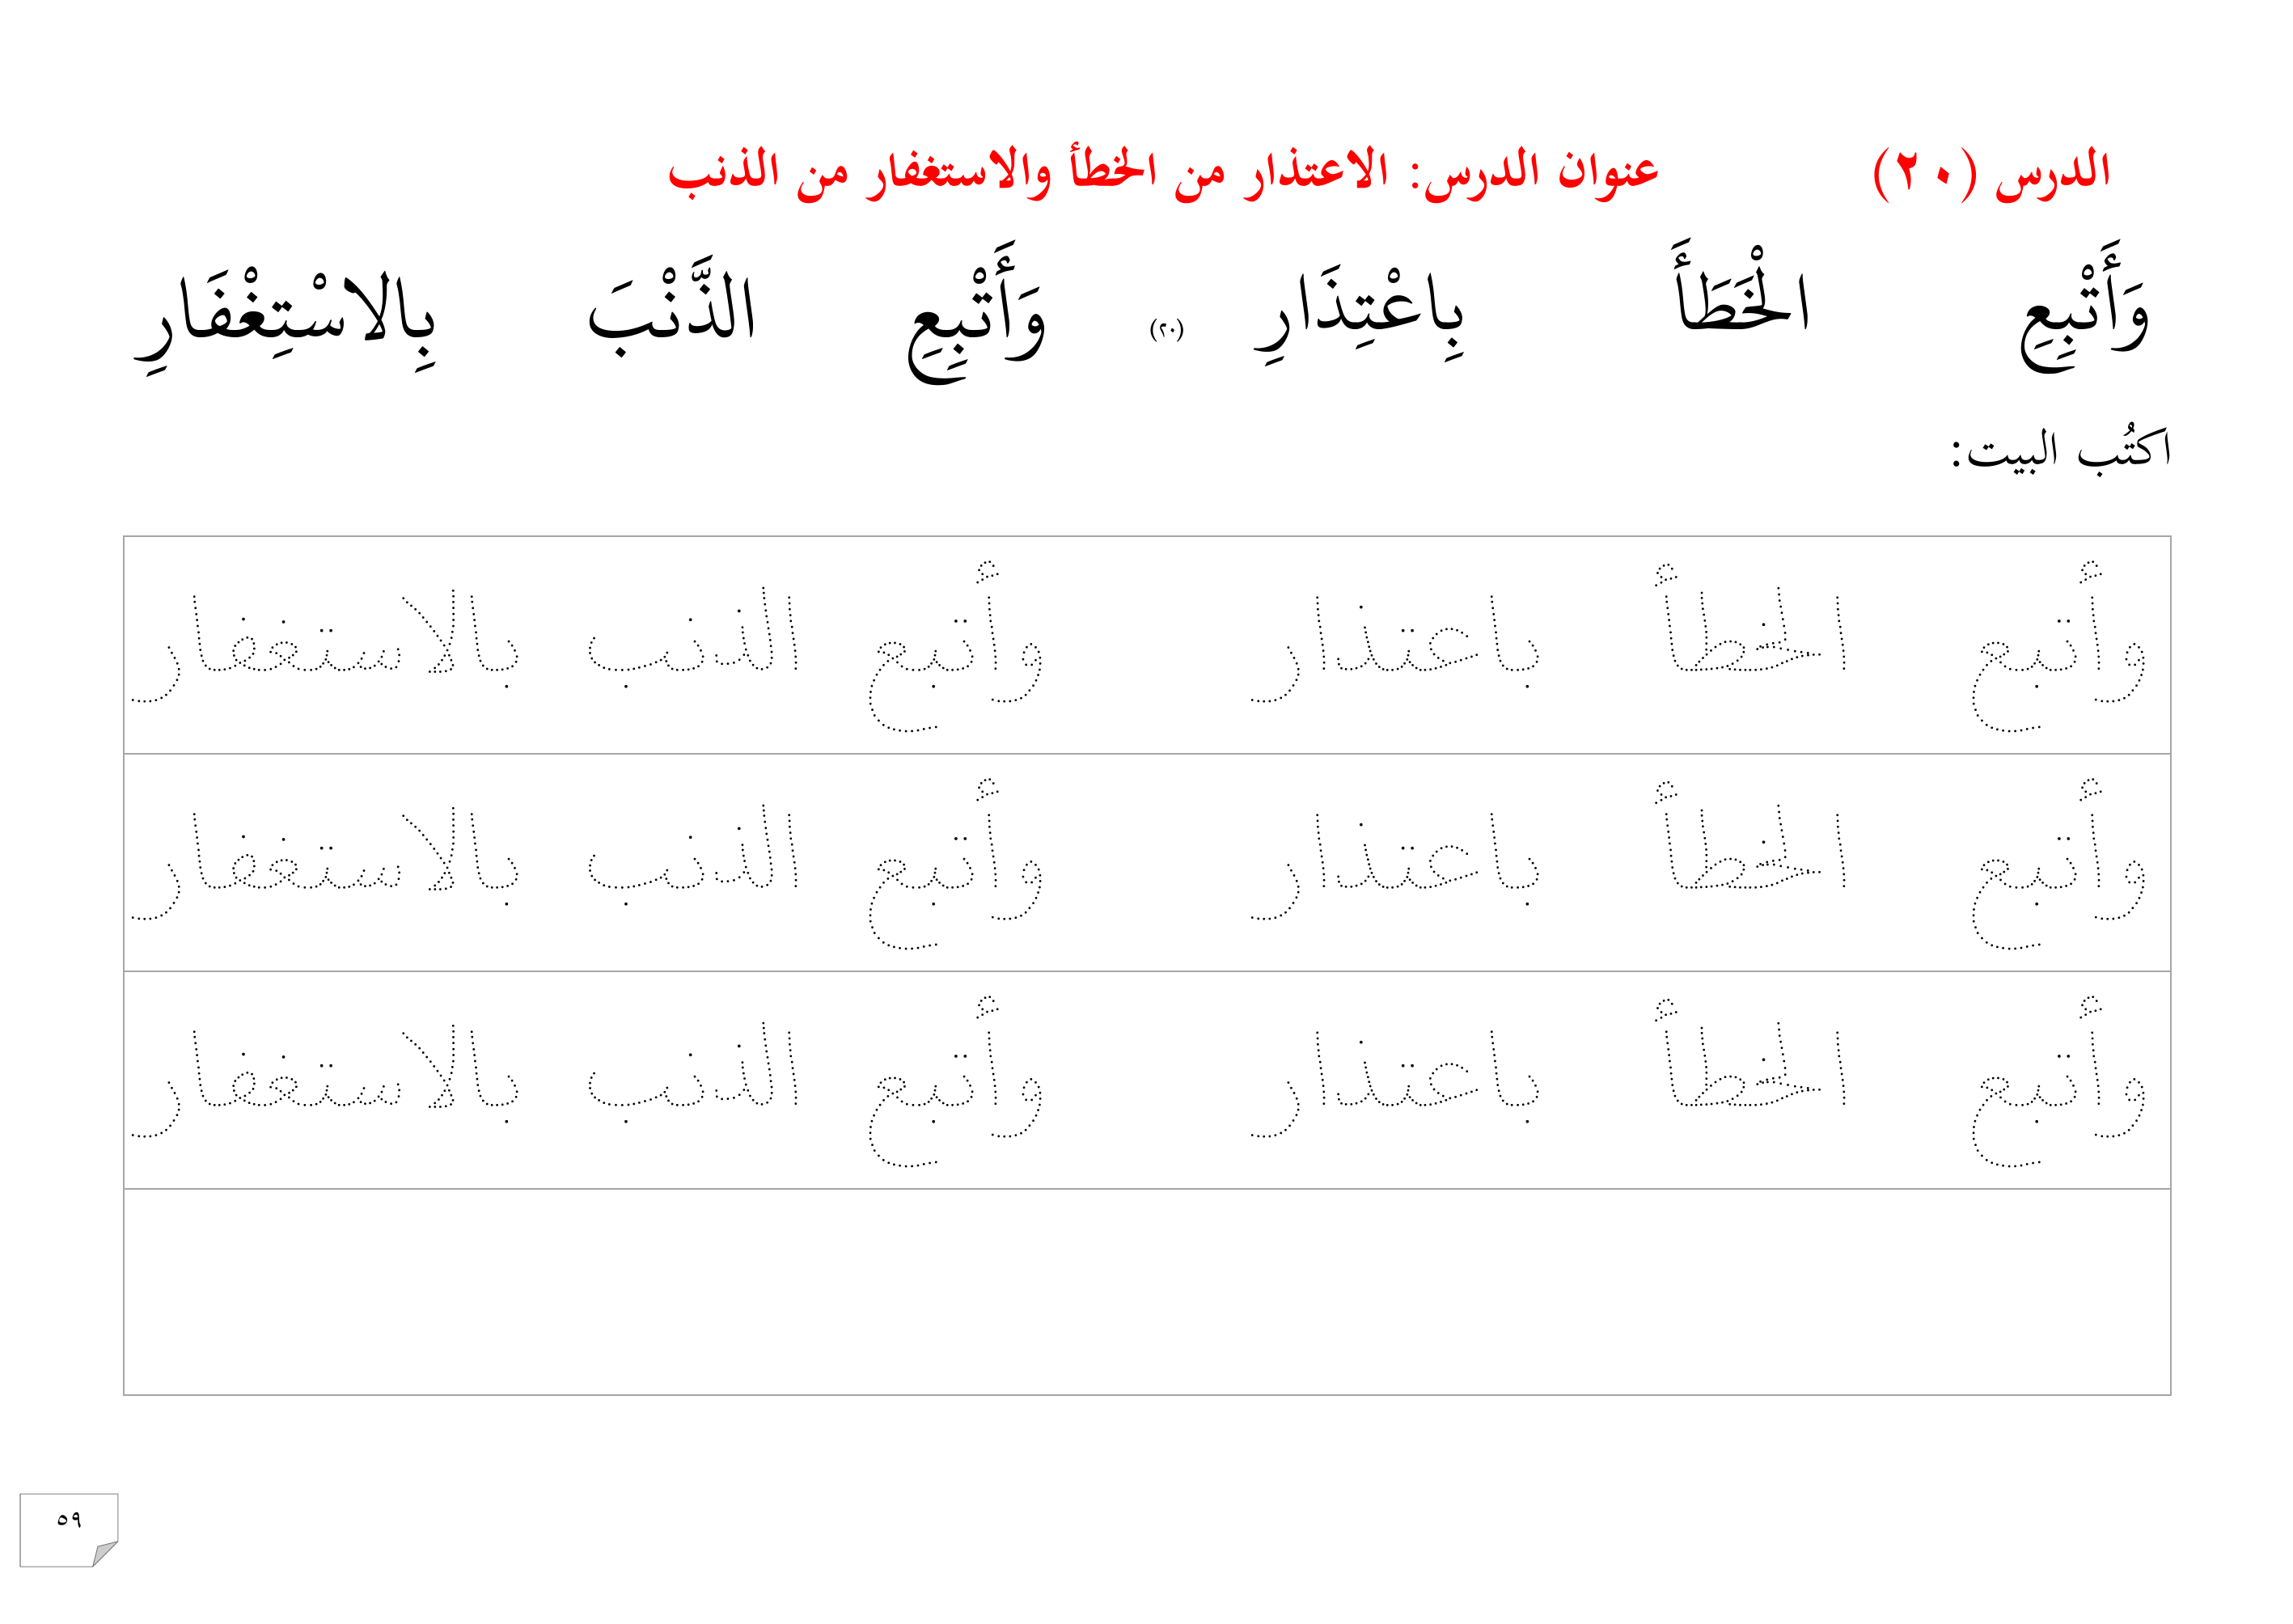 الدرس (٢٠) عنوان الدرس: الاعتذار من الخطأ والاستغفار من الذنب
وَأَتْبِعِ الْخَطَأَ بِاعْتِذَارِ (٢٠) وَأَتْبِعِ الذَّنْبَ بِالاسْتِغْفَارِ
اكتُب البيت:
وأتبع الخطأ باعتذار وأتبع الذنب بالاستغفار
وأتبع الخطأ باعتذار وأتبع الذنب بالاستغفار
وأتبع الخطأ باعتذار وأتبع الذنب بالاستغفار
٥٩